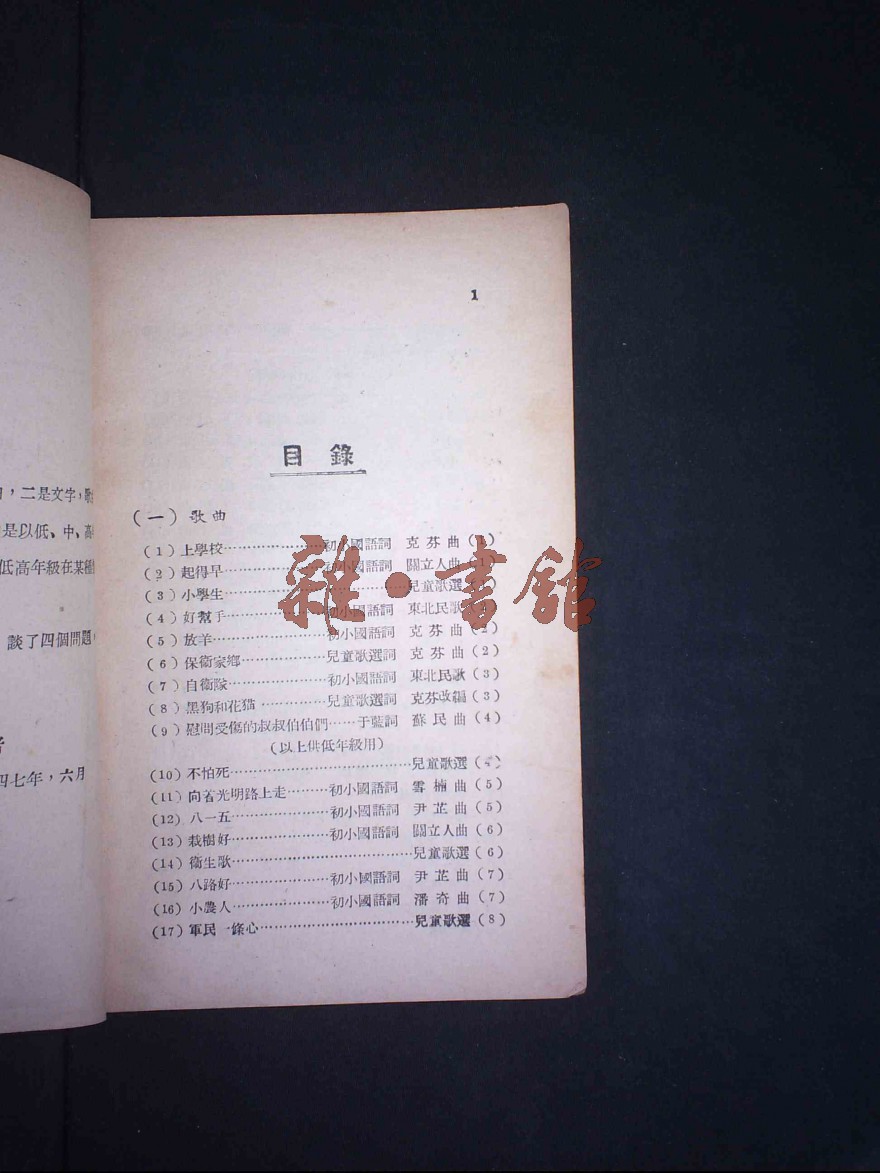 ，二是文字，
是以低、中、高
低高年級在某
談了四個問題
四七年，六月
1
目錄
（一）歌曲
（1）上學校……初小國語詞 克芬曲（1）
（2）起得早……初小國語詞 關立人曲（1）
（3）小學生……兒童歌選
（4）好幫手……初小國語詞 東北民歌
（5）放羊……初小國語詞 克芬曲（2）
（6）保衛家鄉……兒童歌選詞 克芬曲（2）
（7）自衛隊……初小國語詞 東北民歌（3）
（8）黑狗和花猫……兒童歌選詞 克芬改編（3）
（9）慰問受傷的叔叔伯伯們……于藍詞 蘇民曲（4）
（以上供低年級用）
（10）不怕死……兒童歌選（4）
（11）向着光明路上走……初小國語詞 雪楠曲（5）
（12）八一五……初小國語詞 尹芷曲（5）
（13）栽樹好……初小國語詞 關立人曲（6）
（14）衞生歌……兒童歌選（6）
（15）八路好……初小國語詞 尹芷曲（7）
（16）小農人……初小國語詞 潘奇曲（7）
（17）軍民一條心……兒童歌選（8）
雜·書館